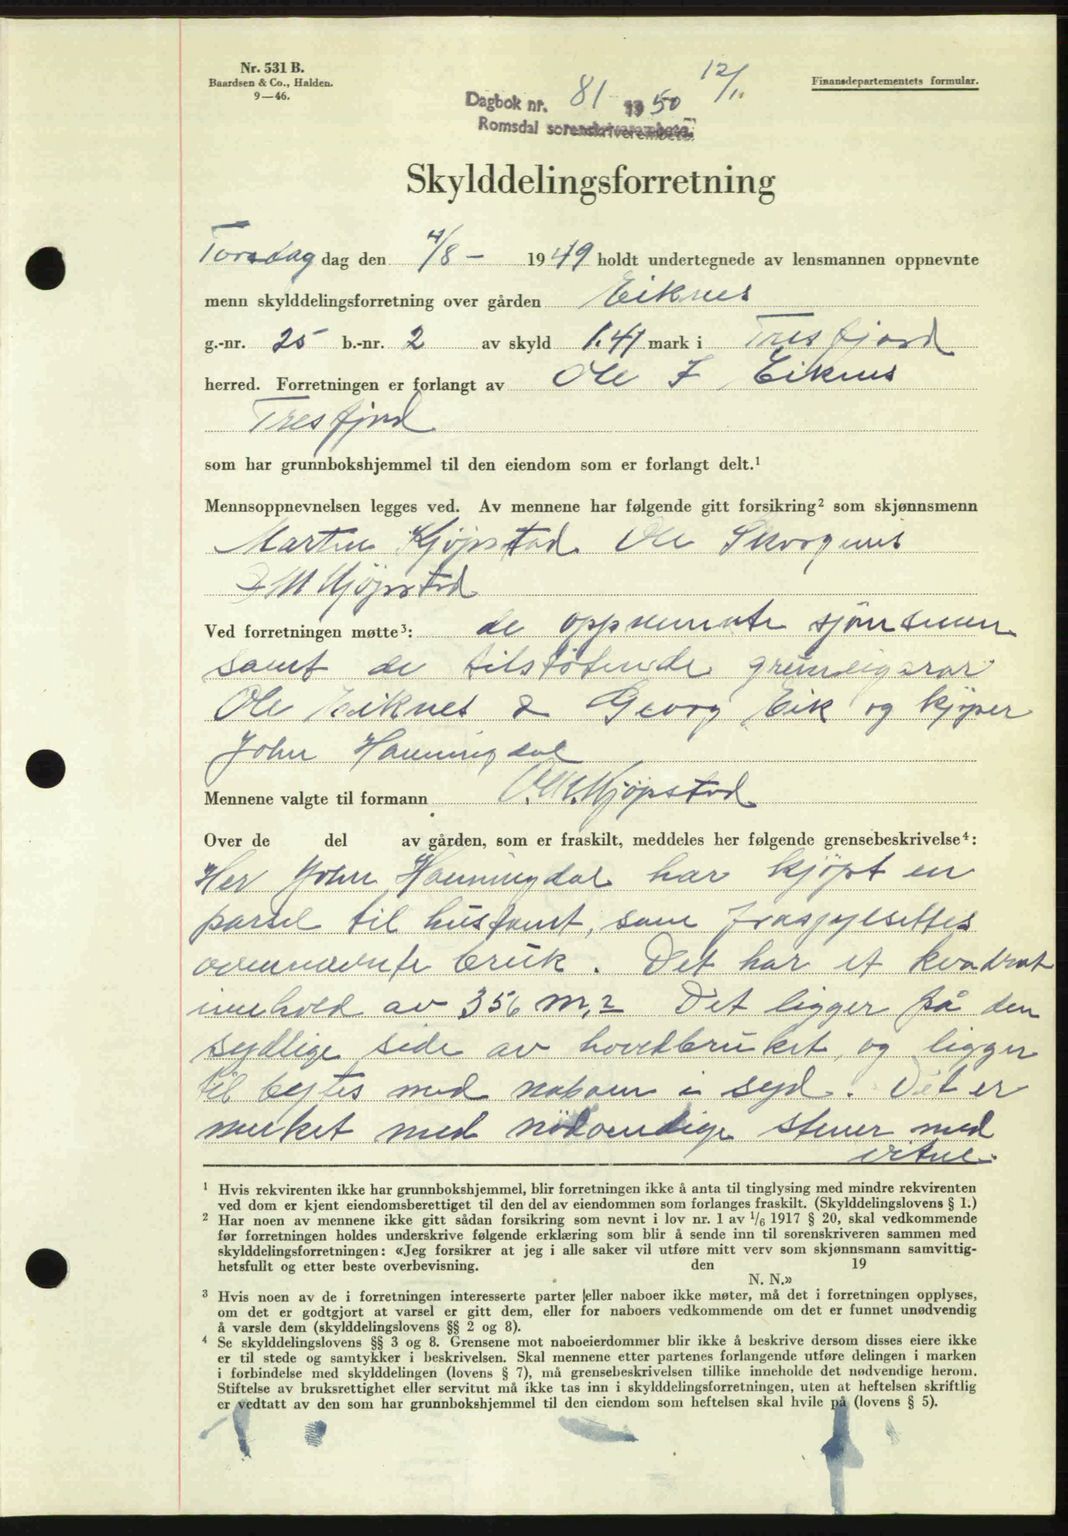 Nr. 531 B.
Baardsen & Co., Halden.
9—46.
Finansdepartementets formular.
12/1.
Dagbok nr. 81 1950
Romsdal sorenskriverembete.
Skylddelingsforretning
Torsdag dag den 4/8 - 1949 holdt undertegnede av lensmannen oppnevnte
menn skylddelingsforretning over gården Eiknes
g.-nr. 25 b.-nr. 2 av skyld 1.41 mark i Tresfjord
herred. Forretningen er forlangt av Ole J Eiknes
Tresfjord
som har grunnbokshjemmel til den eiendom som er forlangt delt.¹
Mennsoppnevnelsen legges ved. Av mennene har følgende gitt forsikring² som skjønnsmenn
Martin Kjöpstad Ole Skorgenes
Kjöpstad
Ved forretningen møtte³: de oppnemnte sjönsmenn
samt de tilstötende grunneigarar
Ole Eiknes & Georg Eik og kjöper
John Hanningdal
Mennene valgte til formann O.M.Kjöpstad
Over de del av gården, som er fraskilt, meddeles her følgende grensebeskrivelse⁴:
Her John Hanningdal har kjöpt en
parsel til hustomt, som fraskyldsettes
ovennevnte bruk. Det har et kvadrat
innhold av 356 m.2 Det ligger på den
sydlige side av hovedbruket, og ligger
til bytes med naboen i syd. Det er
merket med nödvendige stener med
vitne.
¹ Hvis rekvirenten ikke har grunnbokshjemmel, blir forretningen ikke å anta til tinglysing med mindre rekvirenten
ved dom er kjent eiendomsberettiget til den del av eiendommen som forlanges fraskilt. (Skylddelingslovens § 1.)
² Har noen av mennene ikke gitt sådan forsikring som nevnt i lov nr. 1 av 1/6 1917 § 20, skal vedkommende
før forretningen holdes underskrive følgende erklæring som blir å sende inn til sorenskriveren sammen med
skylddelingsforretningen: «Jeg forsikrer at jeg i alle saker vil utføre mitt verv som skjønnsmann samvittig-
hetsfullt og etter beste overbevisning. den 19
N. N.»
³ Hvis noen av de i forretningen interesserte parter eller naboer ikke møter, må det i forretningen opplyses,
om det er godtgjort at varsel er gitt dem, eller for naboers vedkommende om det er funnet unødvendig
å varsle dem (skylddelingslovens §§ 2 og 8).
⁴ Se skylddelingslovens §§ 3 og 8. Grensene mot naboeierdommer blir ikke å beskrive dersom disses eiere ikke
er til stede og samtykker i beskrivelsen. Skal mennene etter partenes forlangende utføre delingen i marken
i forbindelse med skylddelingen (lovens § 7), må grensebeskrivelsen tillike inneholde det nødvendige herom.
Stiftelse av bruksrettighet eller servitut må ikke tas inn i skylddelingsforretningen, uten at heftelsen skriftlig
er vedtatt av den som har grunnbokshjemmel til den eiendom som heftelsen skal hvile på (lovens § 5).